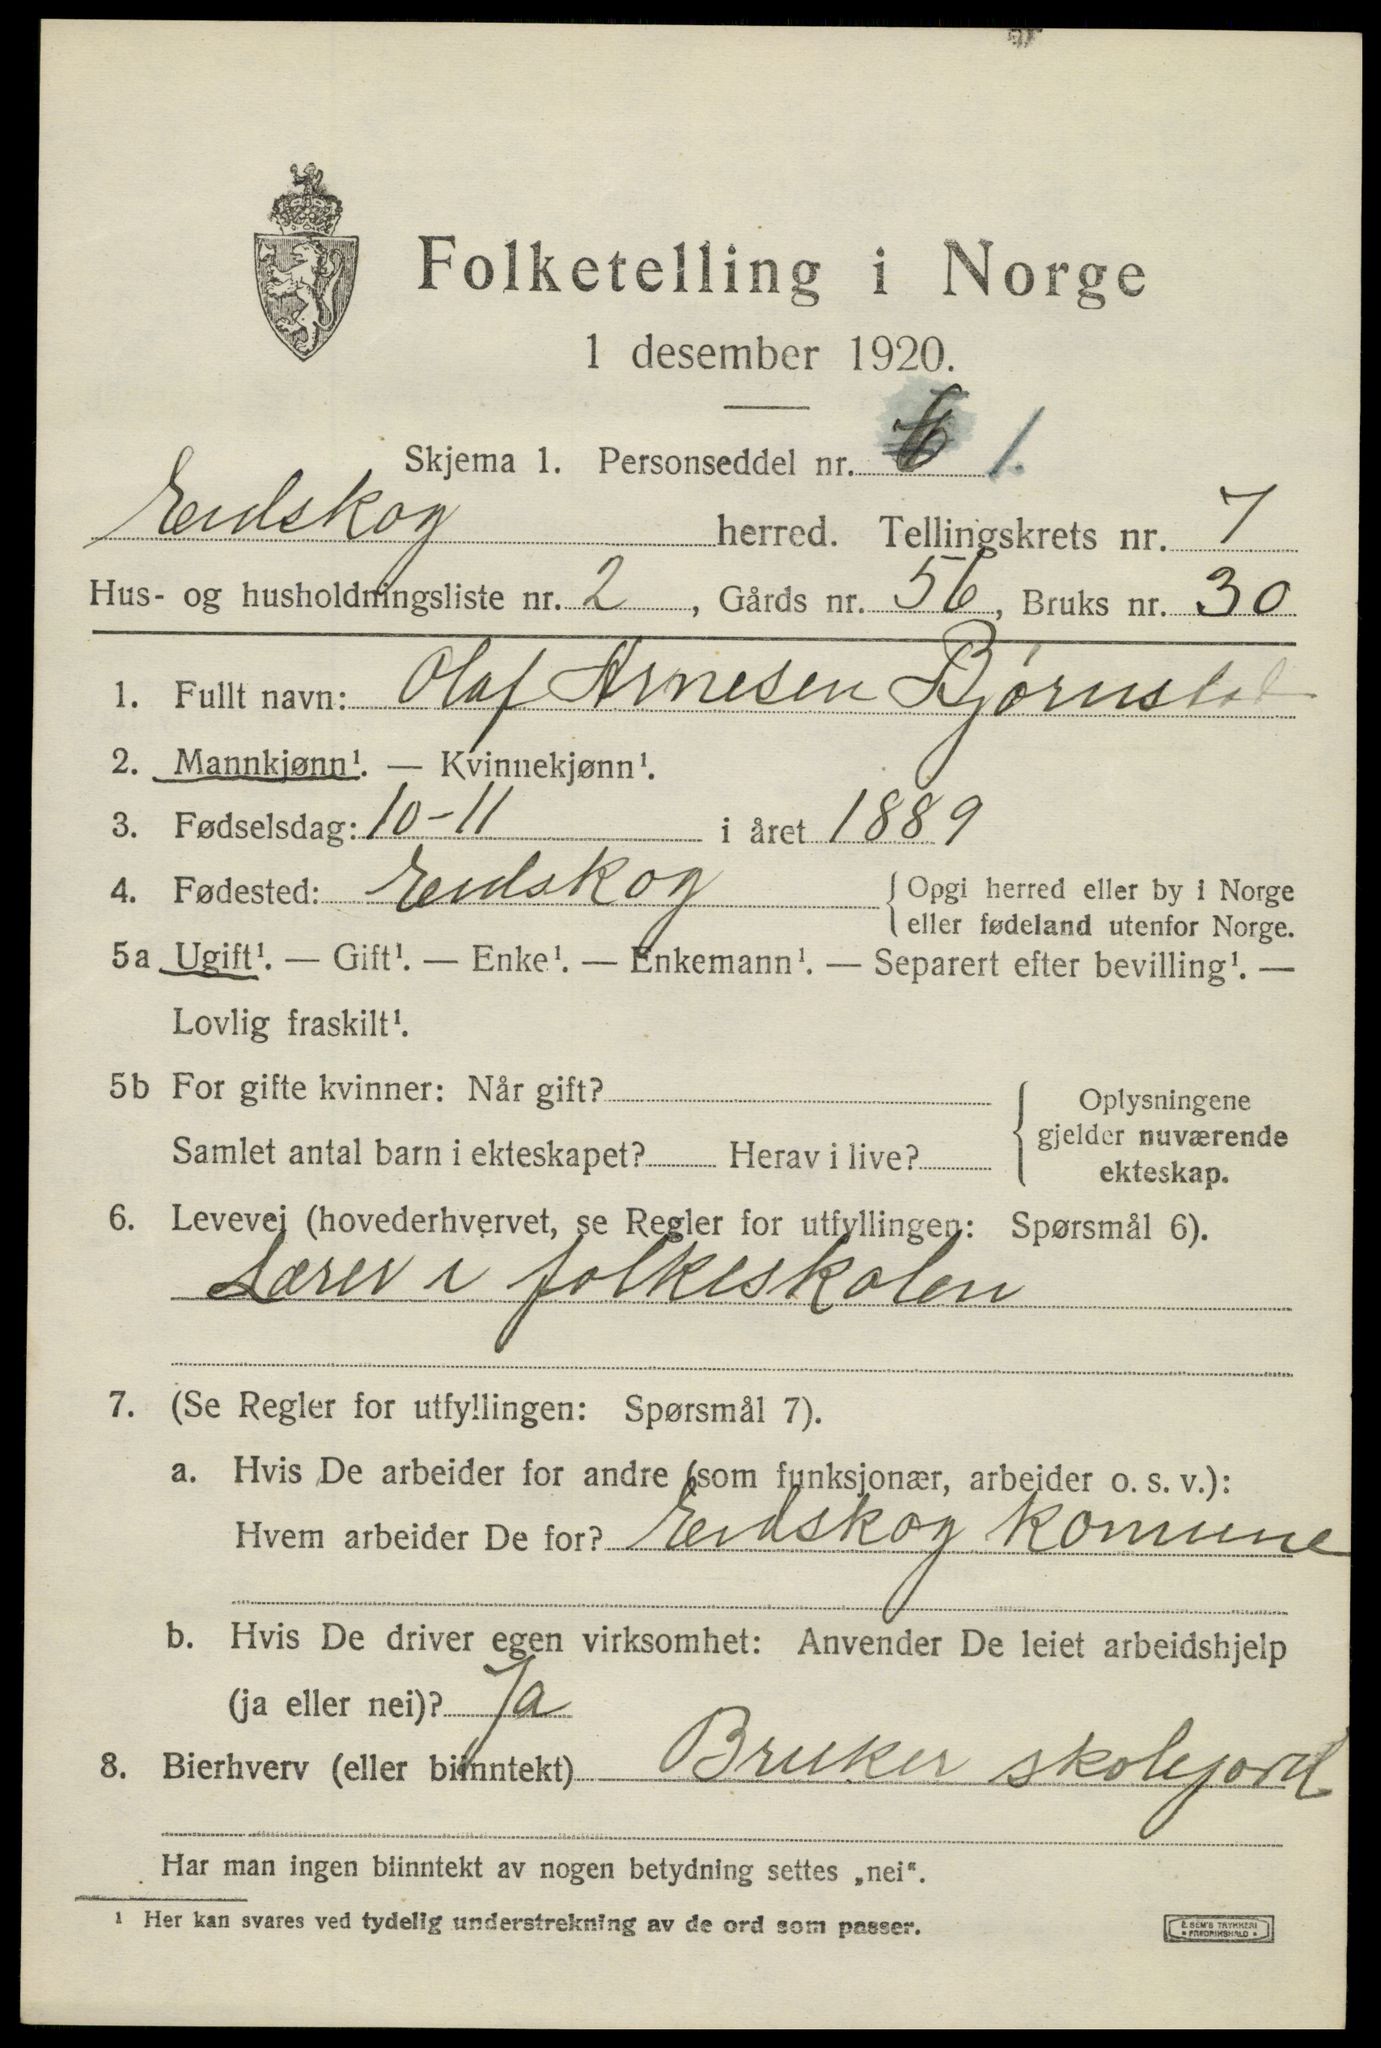 Folketelling i Norge
1 desember 1920.
Skjema 1. Personseddel nr. 1.
Eidskog herred. Tellingskrets nr. 7
Hus- og husholdningsliste nr. 2, Gårds nr. 56, Bruks nr. 30
1. Fullt navn: Olaf Arnesen Bjørnstad
2. Mannkjønn¹. — Kvinnekjønn¹.
3. Fødselsdag: 10-11 i året 1889
4. Fødested: Eidskog {Opgi herred eller by i Norge
eller fødeland utenfor Norge.
5a Ugift¹. — Gift¹. — Enke¹. — Enkemann¹. — Separert efter bevilling¹. —
Lovlig fraskilt¹.
5b For gifte kvinner: Når gift?
Samlet antal barn i ekteskapet? Herav i live?
Oplysningene
gjelder nuværende
ekteskap.
6. Levevei (hovederhvervet, se Regler for utfyllingen: Spørsmål 6).
Lærer i folkeskolen
7. (Se Regler for utfyllingen: Spørsmål 7).
a. Hvis De arbeider for andre (som funksjonær, arbeider o. s. v.):
Hvem arbeider De for? Eidskog komune
b. Hvis De driver egen virksomhet: Anvender De leiet arbeidshjelp
(ja eller nei)? Ja
8. Bierhverv (eller biinntekt) Bruker skolejord
Har man ingen biinntekt av nogen betydning settes „nei“.
¹ Her kan svares ved tydelig understrekning av de ord som passer.
E. SEM'S TRYKKERI
FREDRIKSHALD